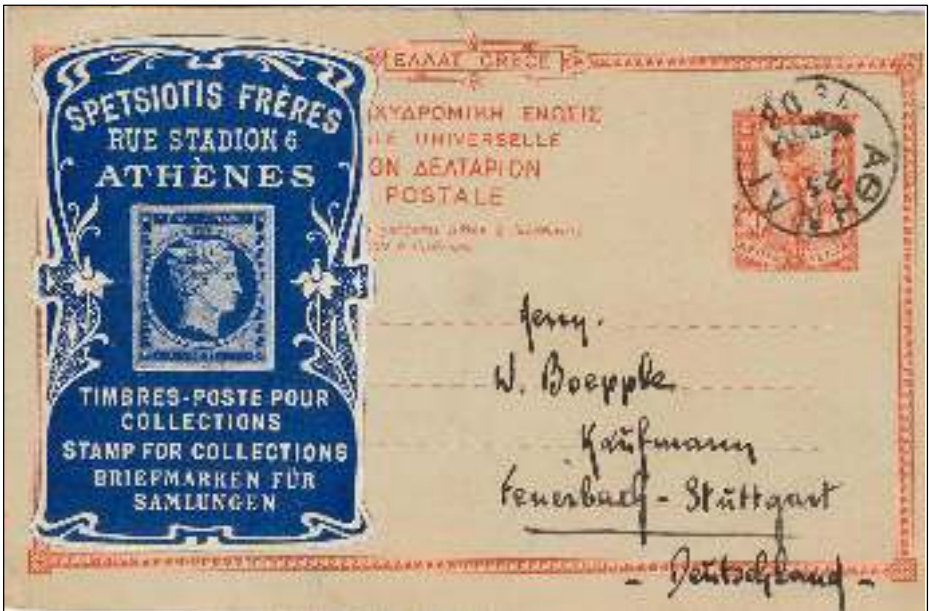 SPETSIOTIS FRÈRES
RUE STADION 6
ATHÈNES
TIMBRES-POSTE POUR
COLLECTIONS
STAMP FOR COLLECTIONS
BRIEFMARKEN FÜR
SAMLUNGEN
ΕΛΛΑΣ GRECE
ΧΥΔΡΟΜΙΚΗ ΕΝΩΣΙΣ
UNIVERSELLE
ΟΝ ΔΕΛΤΑΡΙΟΝ
POSTALE
ΑΘΗΝΑΙ
Herrn.
W. Boepple
Kaufmann
Feuerbach - Stuttgart
- Deutschland -